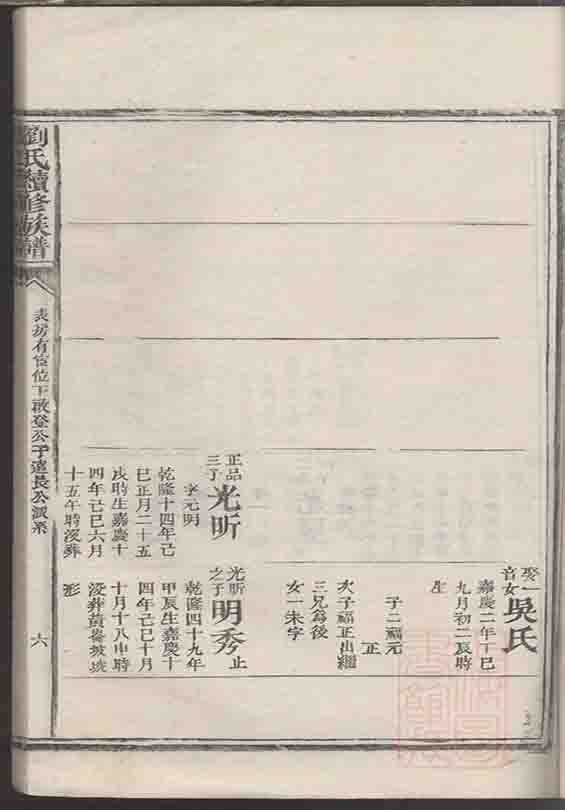 娶一
音女
吳氏
嘉慶二年丁巳
九月初二辰時
生
子二福元
正
次子福正出繼
三兄為後
女一未字
正品
三子
光昕
字元明
乾隆十四年己
巳正月二十五
戌時生嘉慶十
四年己巳六月
十五午時沒葬
形
光昕
之子
明秀
止
乾隆四十九年
甲辰生嘉慶十
四年己巳十月
十月十八申時
沒葬黃崙坡墩
劉氏續修族譜
房有位位下啟登公子遠長公派系
六